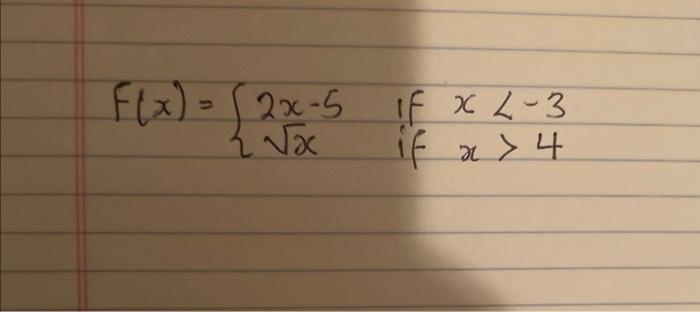 F(x) = { 2x-5 if x < -3
√x if x > 4